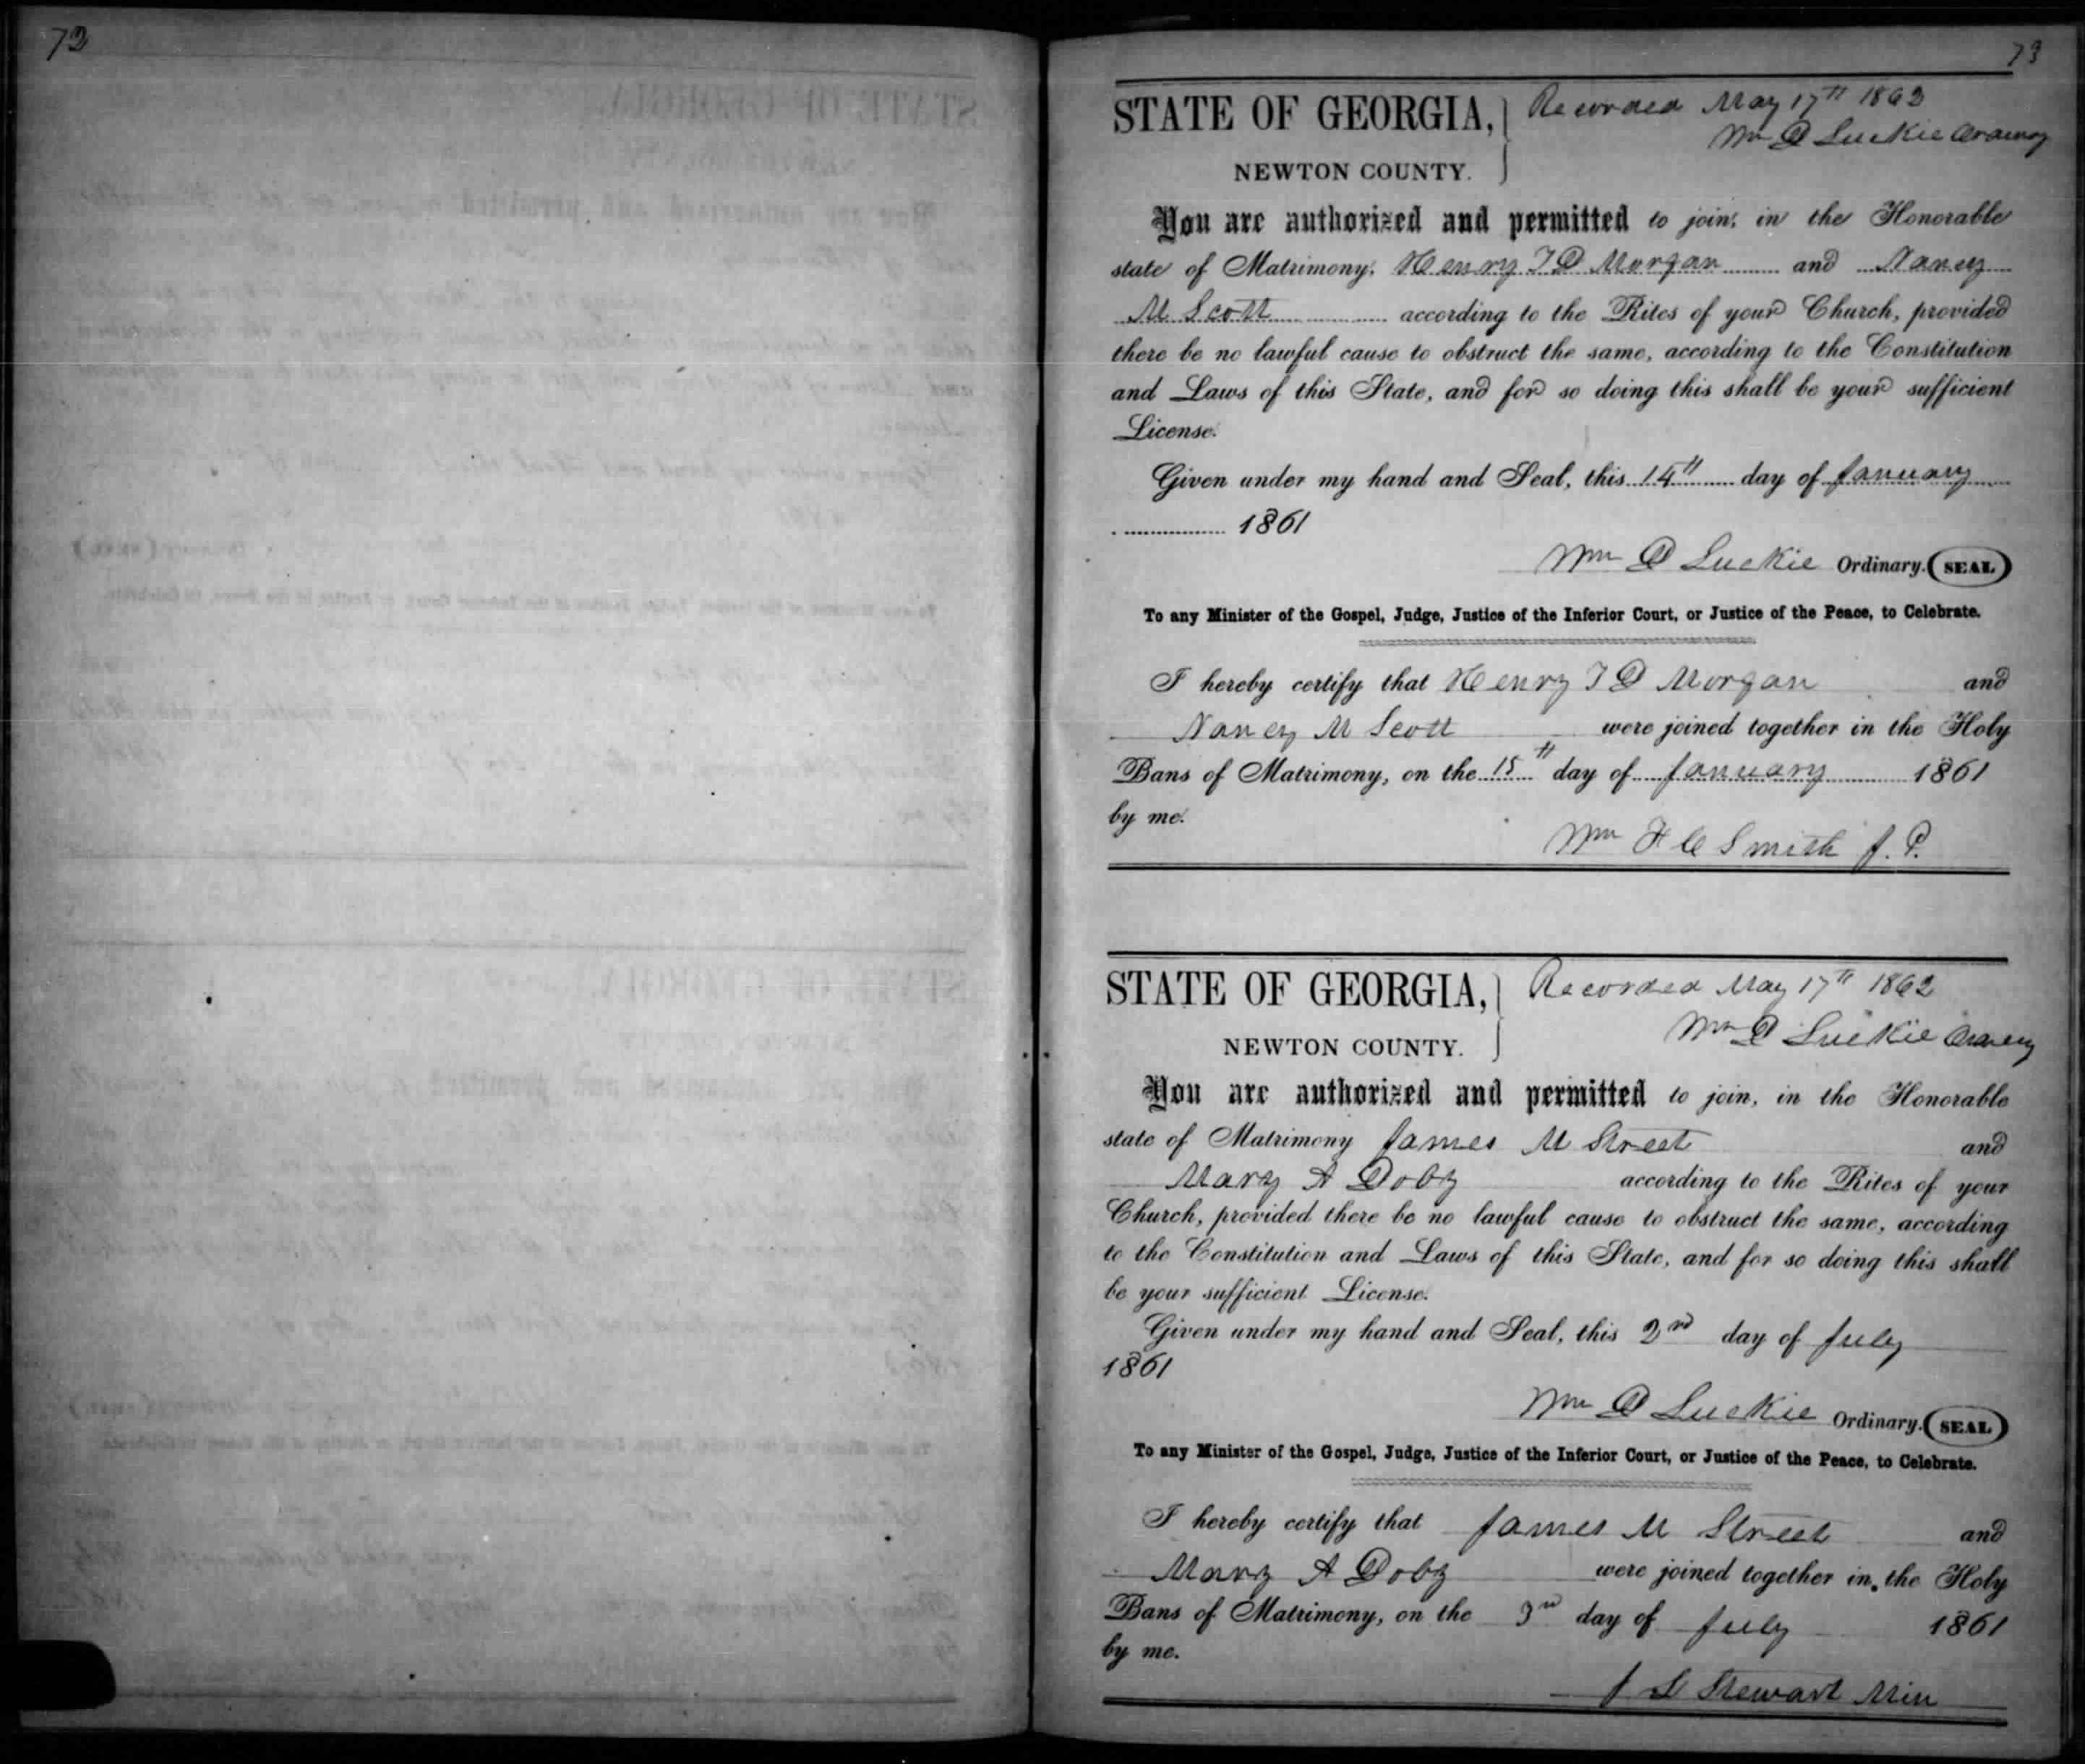 72
73
STATE OF GEORGIA, Recorded May 17th 1862
Wm D Luckie Ordinary
NEWTON COUNTY.
You are authorized and permitted to join, in the Honorable
state of Matrimony, Henry T D Morgan and Nancy
M Scott according to the Rites of your Church, provided
there be no lawful cause to obstruct the same, according to the Constitution
and Laws of this State, and for so doing this shall be your sufficient
License.
Given under my hand and Seal, this 14th day of January
1861
Wm D Luckie Ordinary. (SEAL)
To any Minister of the Gospel, Judge, Justice of the Inferior Court, or Justice of the Peace, to Celebrate.
I hereby certify that Henry T D Morgan and
Nancy M Scott were joined together in the Holy
Bans of Matrimony, on the 15th day of January 1861
by me.
Wm H C Smith J. P.
STATE OF GEORGIA, Recorded May 17th 1862
Wm D Luckie Ordinary
NEWTON COUNTY.
You are authorized and permitted to join, in the Honorable
state of Matrimony James M Street and
Mary A Doby according to the Rites of your
Church, provided there be no lawful cause to obstruct the same, according
to the Constitution and Laws of this State, and for so doing this shall
be your sufficient License.
Given under my hand and Seal, this 2nd day of July
1861
Wm D Luckie Ordinary. (SEAL)
To any Minister of the Gospel, Judge, Justice of the Inferior Court, or Justice of the Peace, to Celebrate.
I hereby certify that James M Street and
Mary A Doby were joined together in the Holy
Bans of Matrimony, on the 3rd day of July 1861
by me.
J L Stewart Min